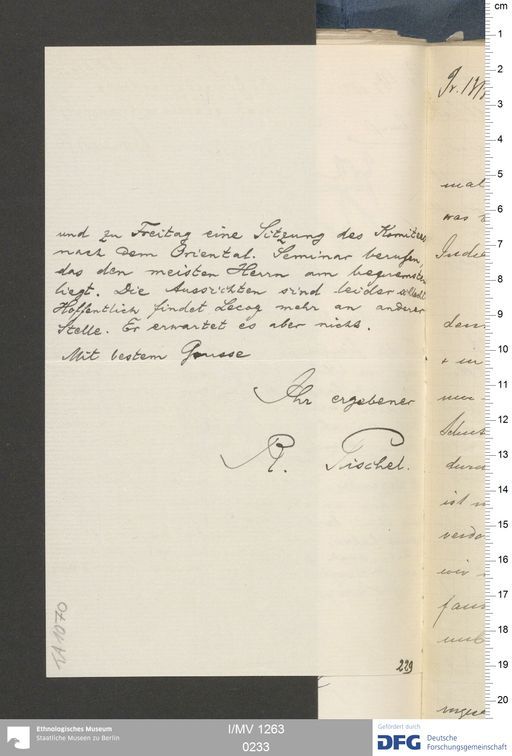 und zu Freitag eine Sitzung des Komitees
nach dem Oriental. Seminar berufen,
das den meisten Herrn am bequemsten
liegt. Die Aussichten sind leider schlecht
Hoffentlich findet Lecoq mehr an anderer
Stelle. Er erwartet es aber nicht.
Mit bestem Grusse
Ihr ergebener
R. Pischel.
229
mal
was
Indie
dem
+ in
nur
Schut
durch
ist
verdo
wir
fan
und
cm
1
2
3
4
5
6
7
8
9
10
11
12
13
14
15
16
17
18
19
20
Ethnologisches Museum
Staatliche Museen zu Berlin
I/MV 1263
0233
Gefördert durch
DFG Deutsche
Forschungsgemeinschaft